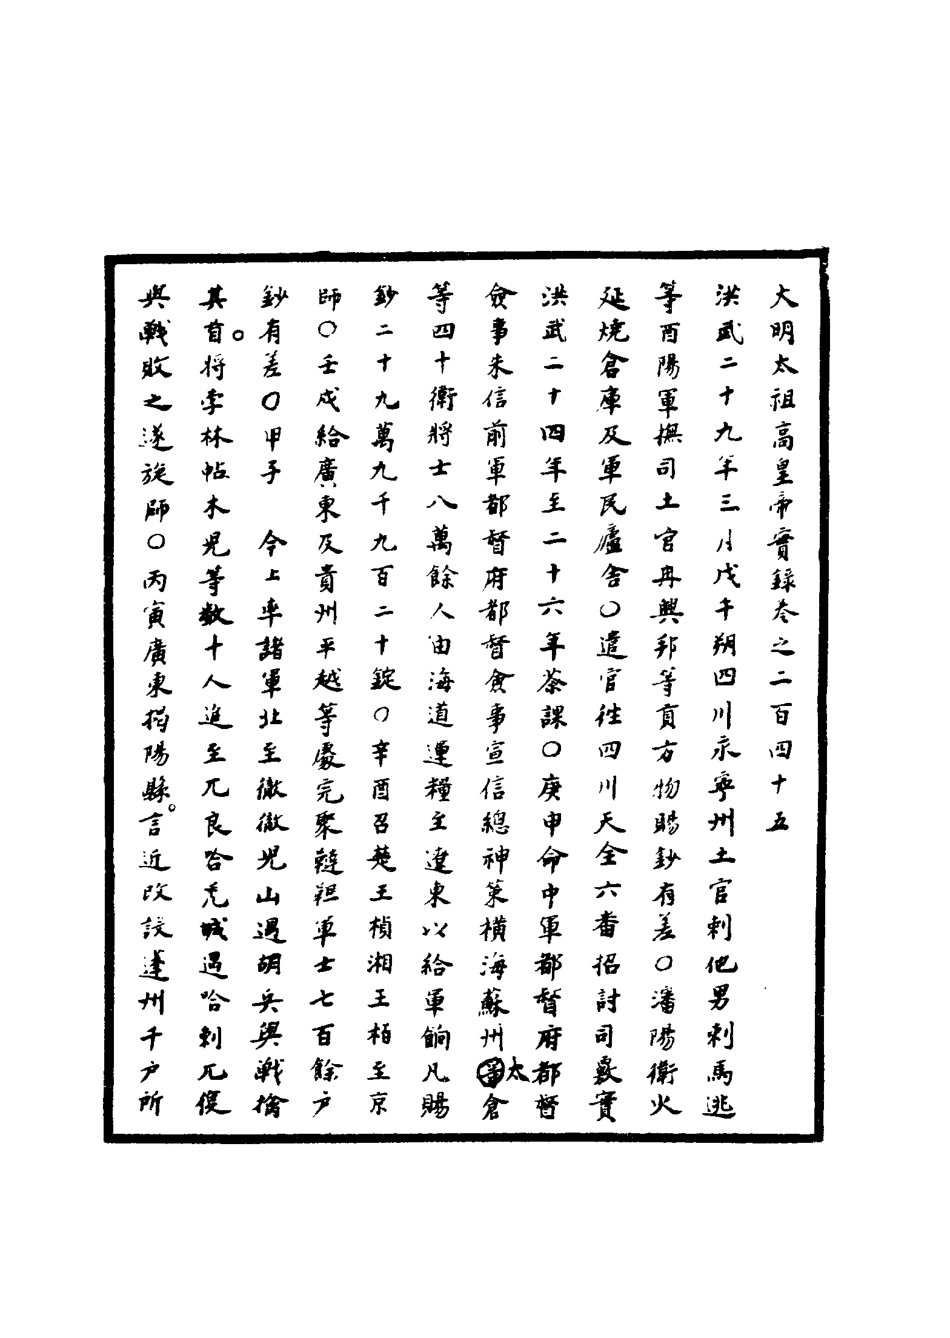 大明太祖高皇帝實錄卷之二百四十五
洪武二十九年三月戊午朔四川永寧州土官剌他男剌馬逃
等酉陽軍撫司土官冉興邦等貢方物賜鈔有差○瀋陽衛火
延燒倉庫及軍民廬舍○遣官往四川天全六番招討司覈實
洪武二十四年至二十六年茶課○庚申命中軍都督府都督
僉事朱信前軍都督府都督僉事宣信總神策橫海蘇州太倉
等四十衛將士八萬餘人由海道運糧至遼東以給軍餉凡賜
鈔二十九萬九千九百二十錠○辛酉召楚王楨湘王柏至京
師○壬戌給廣東及貴州平越等處完聚韃靼軍士七百餘戶
鈔有差○甲子　今上率諸軍北至徹徹兒山遇胡兵與戰擒
其首將孛林帖木兒等數十人進至兀良哈禿城遇哈剌兀復
與戰敗之遂旋師○丙寅廣東揭陽縣言近改設蓬州千戶所